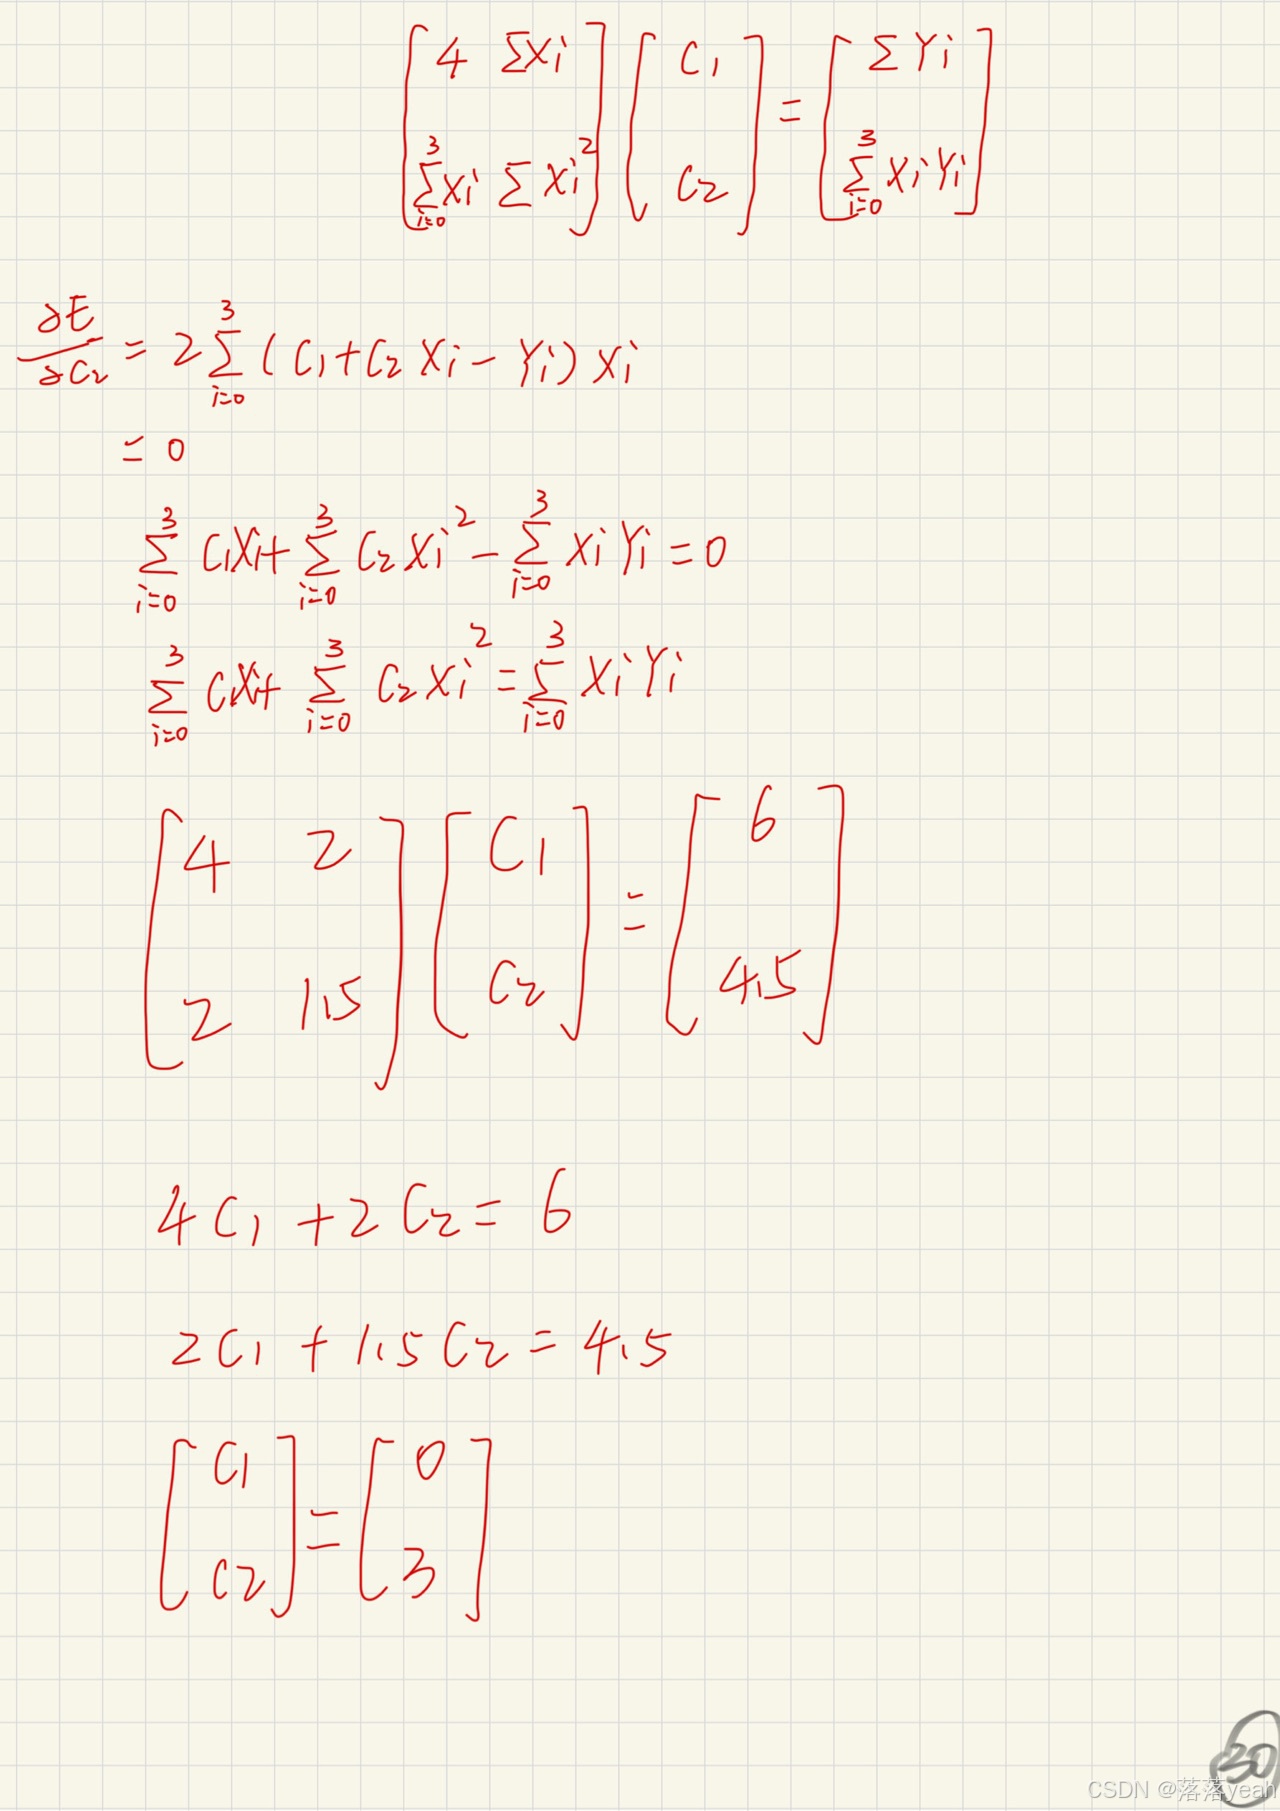 [4 ΣXi; Σ_{i=0}^{3}Xi ΣXi²] [C1; C2] = [ΣYi; Σ_{i=0}^{3}XiYi]
∂E/∂C2 = 2Σ_{i=0}^{3}(C1+C2Xi-Yi)Xi
= 0
Σ_{i=0}^{3} C1Xi+Σ_{i=0}^{3} C2Xi²-Σ_{i=0}^{3} XiYi=0
Σ_{i=0}^{3} C1Xi+Σ_{i=0}^{3} C2Xi²=Σ_{i=0}^{3} XiYi
[4 2; 2 1.5] [C1; C2] = [6; 4.5]
4C1+2C2=6
2C1+1.5C2=4.5
[C1; C2]=[0; 3]
30
CSDN @落落yeah